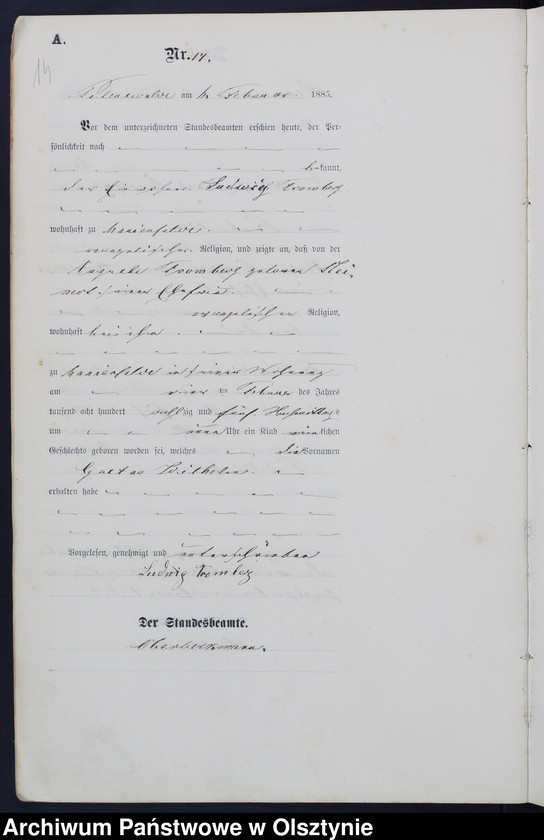 A.
Nr. 14.
14
am Februar 1885.
Vor dem unterzeichneten Standesbeamten erschien heute, der Per-
sönlichkeit nach
kannt,
der Einwohner Ludwig Tromberg
wohnhaft zu Marienfelde
evangelischer Religion, und zeigte an, daß von der
Auguste Tromberg geborene Klei-
nert, seiner Ehefrau
evangelischer Religion,
wohnhaft bei ihm
zu Marienfelde in seiner Wohnung
am vier ten Februar des Jahres
tausend acht hundert achtzig und fünf Nachmittags
um Uhr ein Kind männlichen
Geschlechts geboren worden sei, welches die Vornamen
Gustav Wilhelm
erhalten habe
Vorgelesen, genehmigt und unterschrieben
Ludwig Tromberg
Der Standesbeamte.
Archiwum Państwowe w Olsztynie